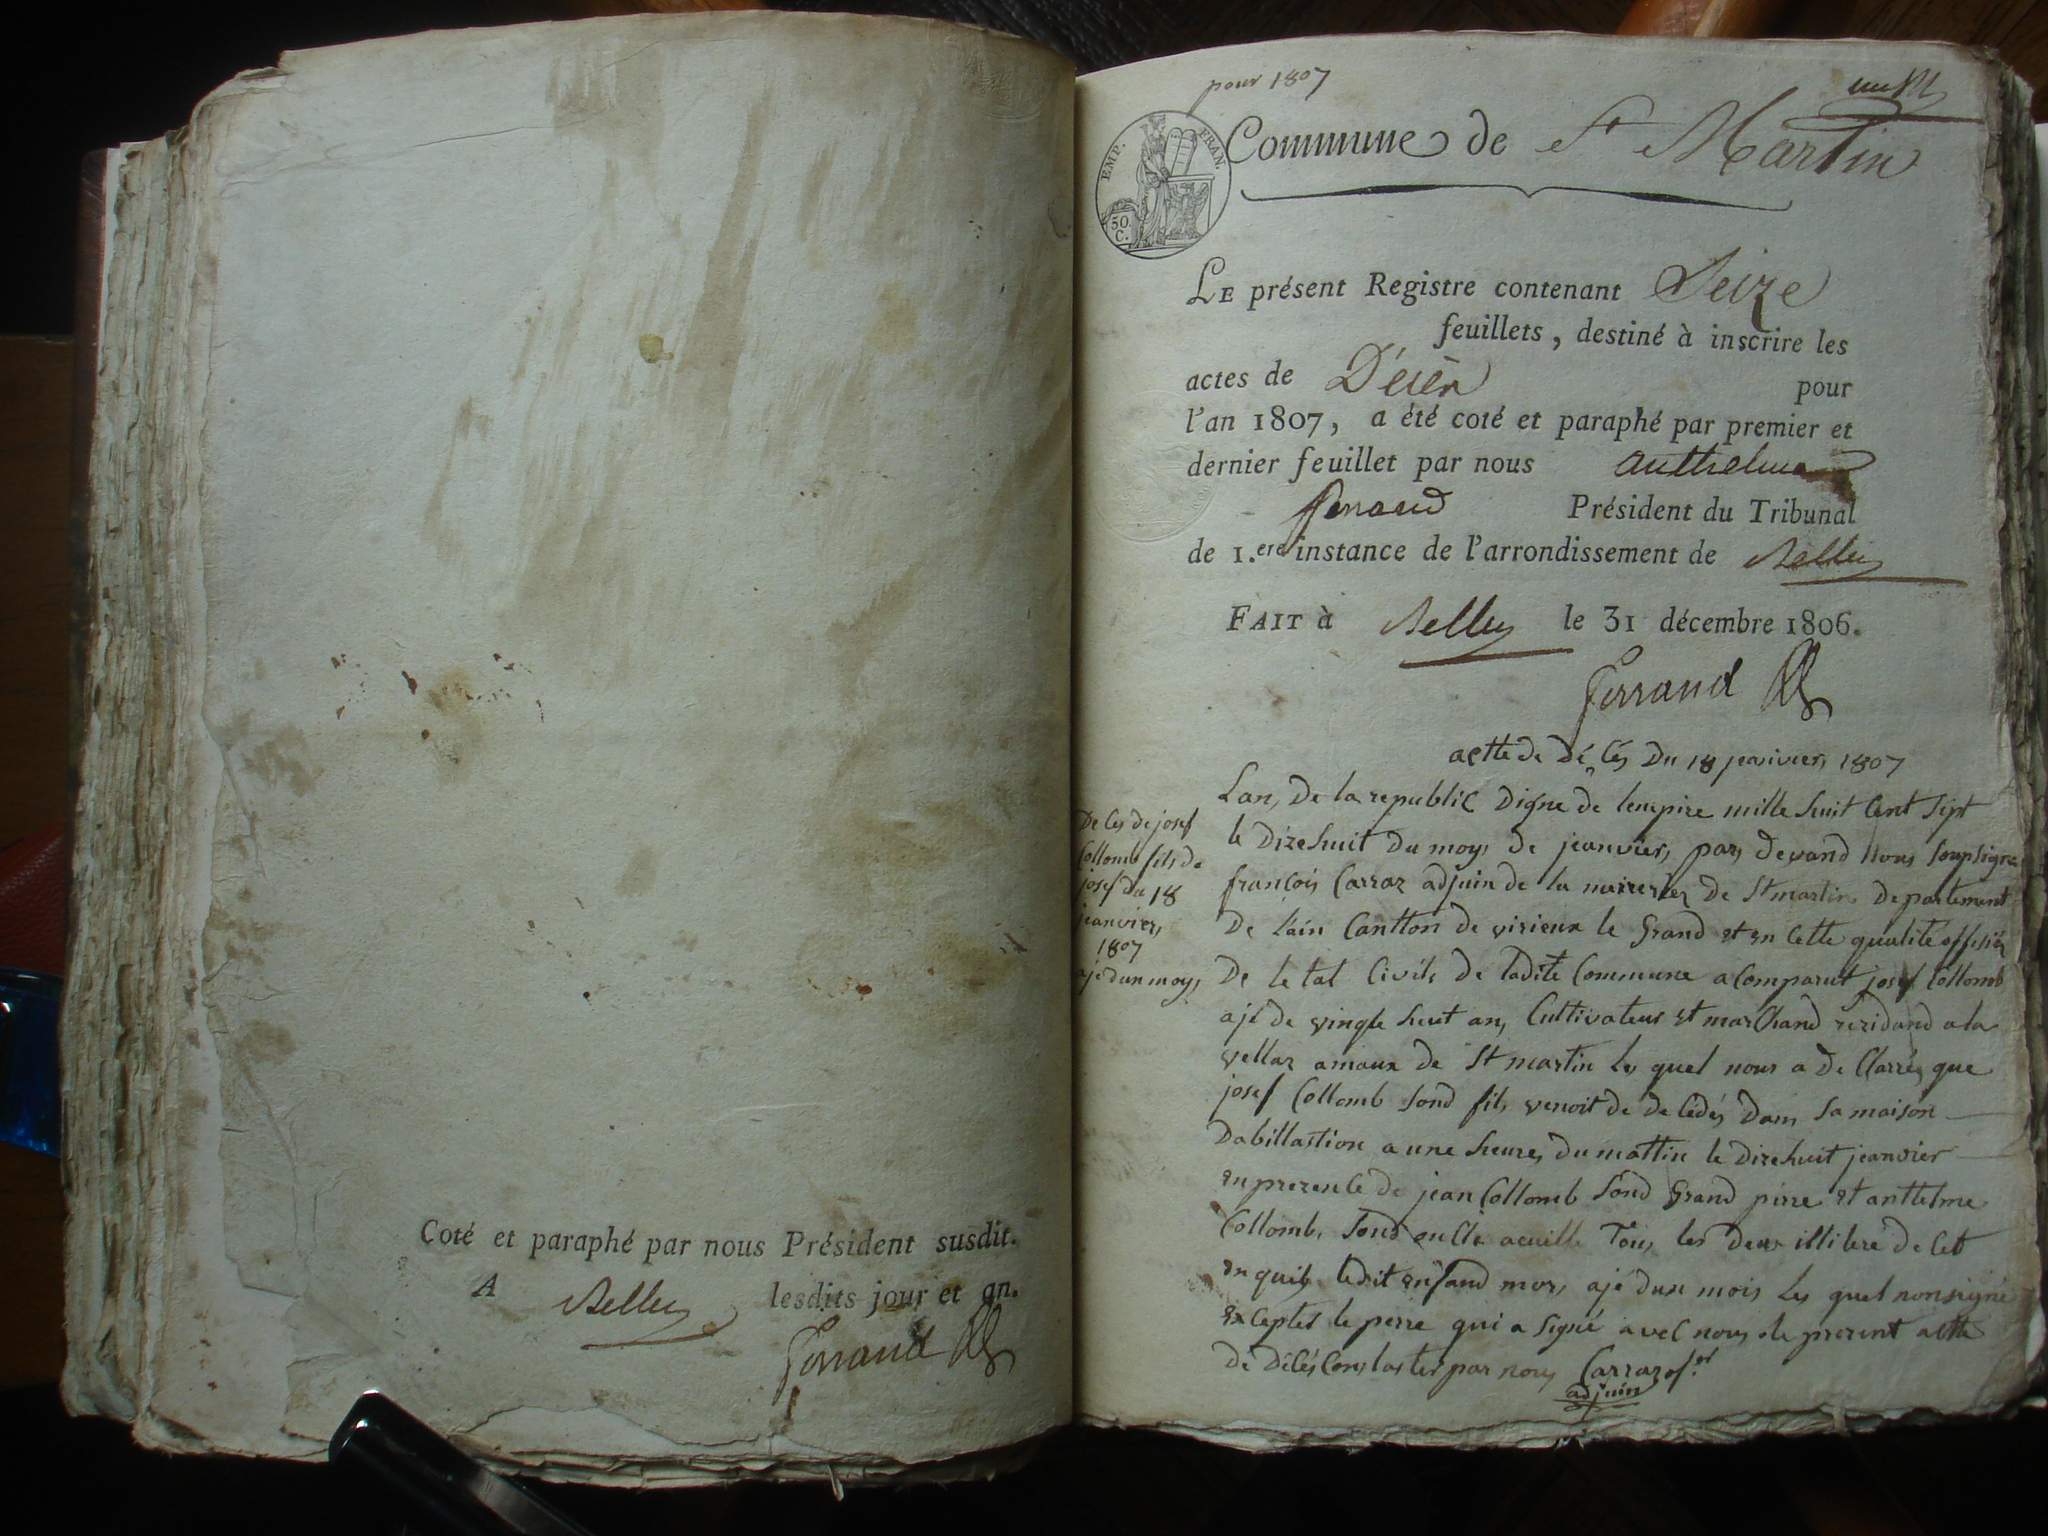 Coté et paraphé par nous Président susdit.
A Belley lesdits jour et an.
Ferrand
pour 1807
EMP. FRAN.
50 C.
Commune de St Martin
LE présent Registre contenant Seize
feuillets, destiné à inscrire les
actes de Décès pour
l'an 1807, a été coté et paraphé par premier et
dernier feuillet par nous anthelme
ferrand Président du Tribunal
de 1.ere instance de l'arrondissement de Belley
FAIT à Belley le 31 décembre 1806.
Ferrand
actte de dé Cés Du 18 jeanvier, 1807
De Cés de josef
Collomb fils de
josef du 18
jeanvier,
1807
aje dun moys
Lan, De la republic Digne de lempire mille huit Cent Sept
le Dizehuit Du moys de jeanvier, par, devand Nous Soupsigne
françois Carraz adjuin de la mairer de St martin Departement
De l'ain Cantton de virieux le Grand et en Cette qualité offisié
De le tat Civile de ladite Commune a Comparut josef Collomb
ajé de vingte huit an, Cultivateur et marChand rezidand a la
vellaz amaux de St martin les quel nous a de Clarré que
josef Collomb Sond fils venoit de de Cédés Dans Sa maison
Dabillastion a une heure, du mattin le Dizehuit jeanvier
en prezenCe de jean Collomb Sond Grand pirre et anttelme
Collomb, Sond onCle Tous les deux de Cet
ledit enfand mor, ajé dun mois les quel nonsigné
exCeptés le perre qui a Signé aveC nous le prezent actte
de déCés Constaster par nous Carraz of.er
adjuin